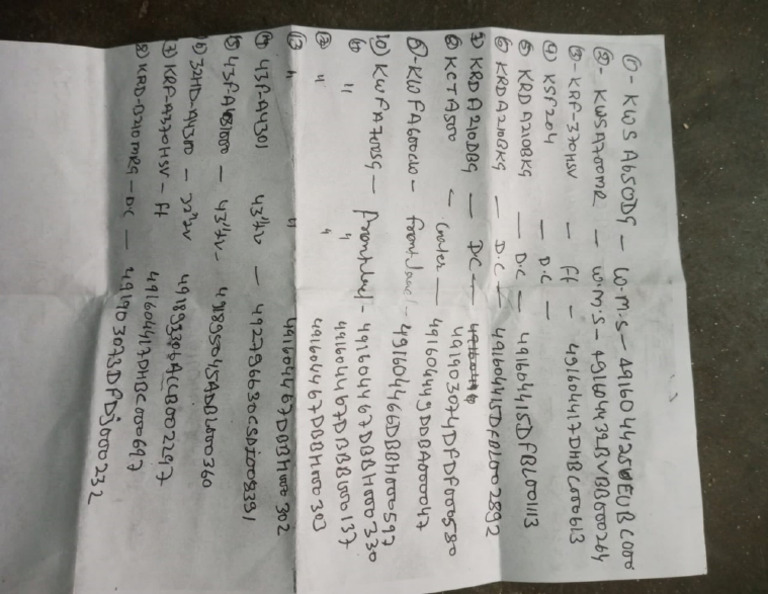 ① - KWSA650DG - W.M.S - 49160442SVEUBC000
② - KWSA700MR - W.M.S - 49160443LBVBB000264
③ - KRF-370HSV - Ff - 491604417DHBC000613
④ KSF204 - D.C -
⑤ KRDA210BKG - D.C - 491604415DFBL001113
⑥ KRDA210BKG - D.C - 491604415DFBL002892
⑦ KRDA210DBG - DC - 491903074DFDF000580
⑧ KCTA500 - Cooler - 491604449DBBA000047
⑨ - KWFA600LW - frontload - 491604466DBBH000597
⑩ KWFA700SG - frontload - 491604467DBBH000330
⑪ " " 491604467DBBB000137
⑫ " " 491604467DBBH000303
⑬ " " 491604467DBBH000302
⑭ 43F-A4301 43"tv - 492796630CSDI008391
⑮ 43FA4B1000 - 43"tv - 491895043ADBL000360
⑯ 32HD-A4300 - 32"tv 491893364ACCB002297
⑰ KRF-A370HSV - Ff 491604417DHBC000697
⑱ KRD-D210MRG - DC - 491903073DFDJ000232